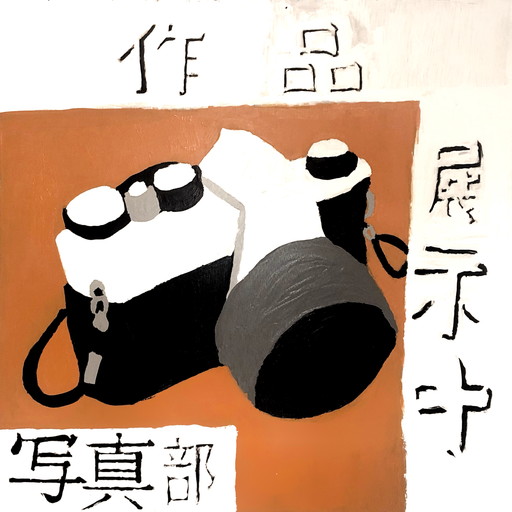 作品
展示中
写真部